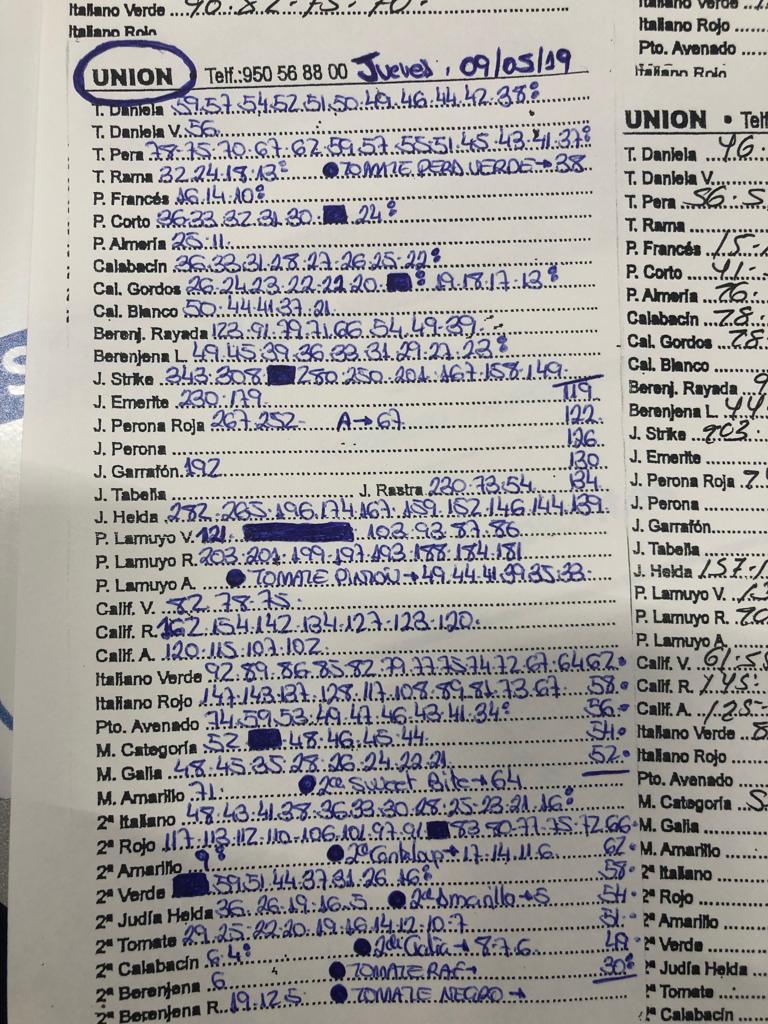 Italiano Verde 90.82.75.70.
Italiano Rojo
UNION Telf.:950 56 88 00 Jueves, 09/05/19
T. Daniela 59.57.54.52.51.50.49.46.44.42.38º
T. Daniela V. 56.
T. Pera 78.75.70.67.62.59.57.55.51.45.43.41.37º
T. Rama 32.24.18.13º ●TOMATE PERA VERDE→38
P. Francés 16.14.10º
P. Corto 36.33.32.31.30. 24º
P. Almería 25.11.
Calabacín 36.33.31.28.27.26.25.22º
Cal. Gordos 26.24.23.22.22.20. º 19.18.17.13º
Cal. Blanco 50.44.41.37.21.
Berenj. Rayada 123.91.79.71.66.54.49.39.
Berenjena L. 49.45.39.36.33.31.29.27.23º
J. Strike 343.308. 280.250.201.167.158.149.
119
J. Emerite 230.179.
J. Perona Roja 267.252. A→67 122
J. Perona 126
J. Garrafón 192 130
J. Tabella J. Rastra 230.73.54 134
J. Helda 282.265.196.174.167.159.152.146.144.139.
P. Lamuyo V. 121. 103.93.87.86
P. Lamuyo R. 203.201.199.197.193.188.184.181
P. Lamuyo A. ● TOMATE PINTÓN→49.44.41.39.35.33.
Calif. V. 82.78.75.
Calif. R. 162.154.142.134.127.123.120.
Calif. A. 120.115.107.102.
Italiano Verde 92.89.86.85.82.79.77.75.74.72.67.64.62.
Italiano Rojo 147.143.137.128.117.108.89.81.73.67. 58.
Pto. Avenado 74.59.53.49.47.46.43.41.34º 56.
M. Categoría 52. 48.46.45.44. 54.
M. Galia 48.45.35.28.26.24.22.21. 52.
M. Amarillo 71. ●2ª Sweet Bite→64
2ª Italiano 48.43.41.38.36.33.30.28.25.23.21.16º
2ª Rojo 117.113.112.110.106.101.97.91. 83.80.77.75.72.66.
2ª Amarillo 9º ●2ª Cantelap→17.14.11.6 62.
2ª Verde 59.51.44.37.31.26.16º 58.
2ª Judía Helda 36.26.19.16.5 ●2ª Amarillo→5 54.
2ª Tomate 29.25.22.20.19.16.14.12.10.7 51.
2ª Calabacín 6.4º ●2ª Galia→8.7.6 49.
2ª Berenjena 6 ●TOMATE RAF→ 30º
2ª Berenjena R. 19.12.5 ●TOMATE NEGRO→
Italiano Rojo
Pto. Avenado
Italiano Rojo
UNION • Telf
T. Daniela 46.
T. Daniela V.
T. Pera 56.5
T. Rama
P. Francés 15.
P. Corto 41-
P. Almería 76.
Calabacín 28.
Cal. Gordos 28
Cal. Blanco
Berenj. Rayada 9
Berenjena L. 44
J. Strike 203.
J. Emerite
J. Perona Roja
J. Perona
J. Garrafón
J. Tabella
J. Helda 157.1
P. Lamuyo V.
P. Lamuyo R. 20
P. Lamuyo A.
Calif. V. 61.55
Calif. R. 145.
Calif. A. 125-
Italiano Verde 8
Italiano Rojo
Pto. Avenado
M. Categoría 5
M. Galia
M. Amarillo
2ª Italiano
2ª Rojo
2ª Amarillo
2ª Verde
2ª Judía Helda
2ª Tomate
2ª Calabacín